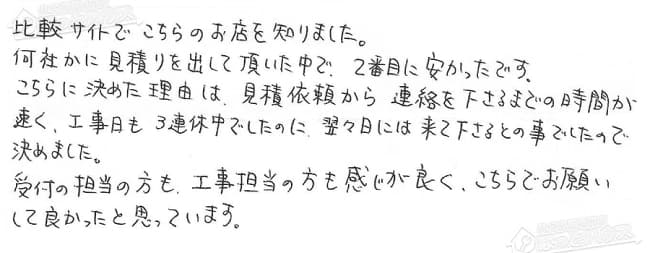 比較サイトでこちらのお店を知りました。
何社かに見積りを出して頂いた中で、2番目に安かったです。
こちらに決めた理由は、見積依頼から連絡を下さるまでの時間が
速く、工事日も3連休中でしたのに、翌々日には来て下さるとの事でしたので
決めました。
受付の担当の方も、工事担当の方も感じが良く、こちらでお願い
して良かったと思っています。